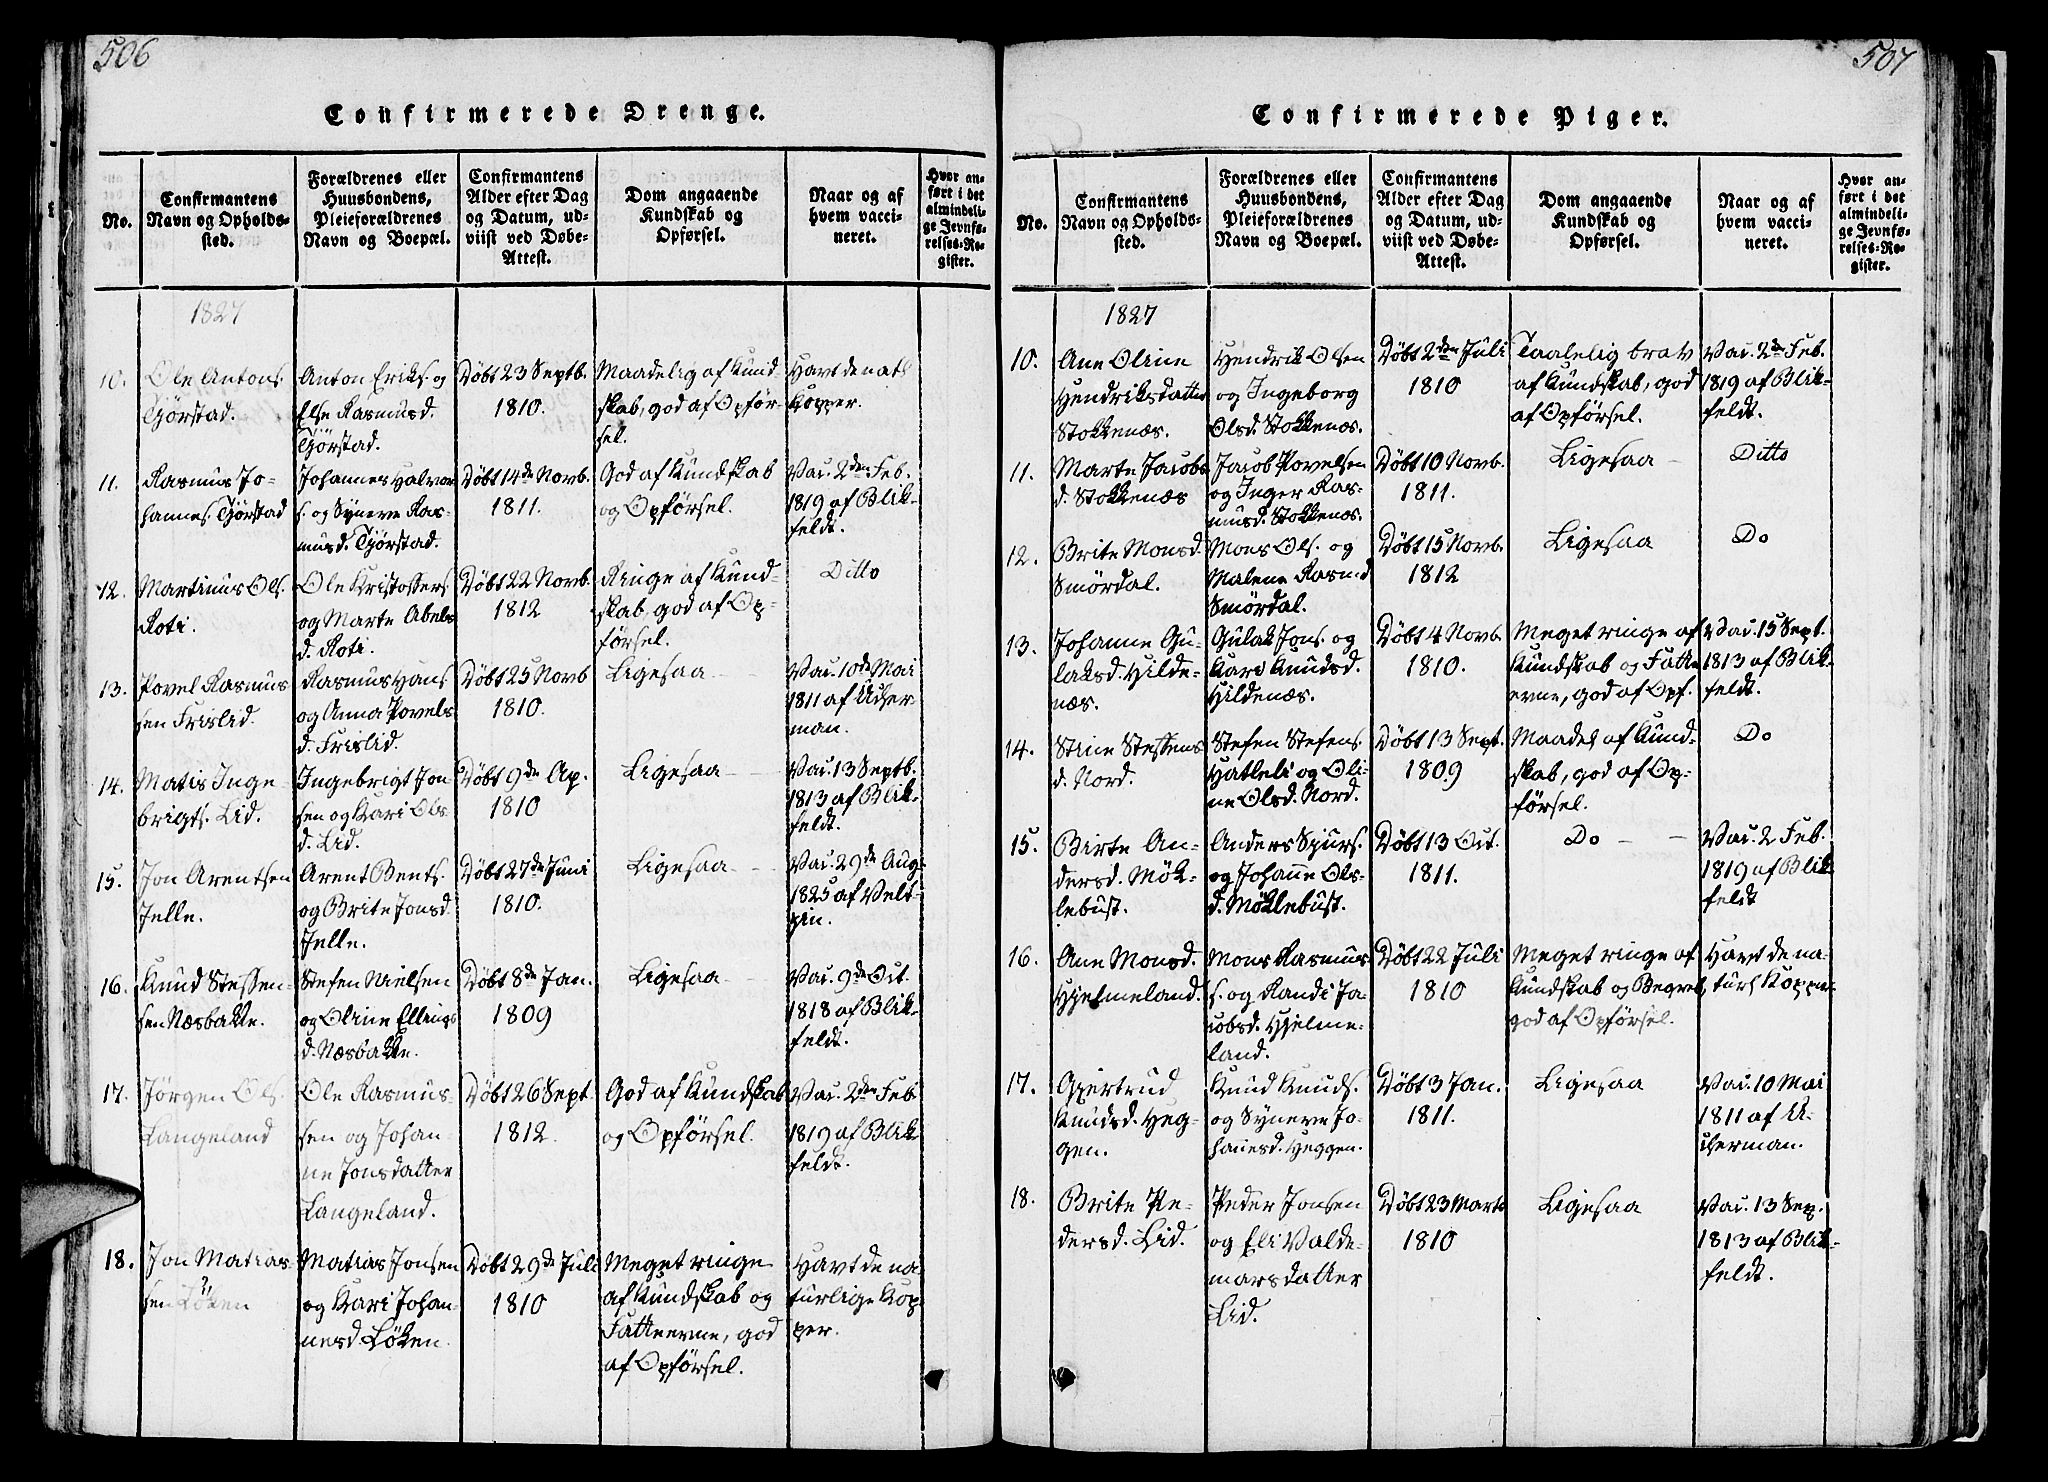 506
Confirmerede Drenge.
No.
Confirmantens
Navn og Opholds-
sted.
Forældrenes eller
Huusbondens,
Pleieforældrenes
Navn og Boepæl.
Confirmantens
Alder efter Dag
og Datum, ud-
viist ved Døbe-
Attest.
Dom angaaende
Kundskab og
Opførsel.
Naar og af
hvem vacci-
neret.
Hvor an-
ført i det
almindeli-
ge Jevnfø-
relses-Re-
gister.
1827
10.
Ole Antons.
Tjørstad.
Anton Eriks. og
Else Rasmusd.
Tjørstad.
Døbt 23 Septb.
1810.
Maadelig af Kund-
skab, god af Opfør-
sel.
Havt de natl
Kopper.
11.
Rasmus Jo-
hannes. Tjørstad
Johannes Halvor
s. og Synneve Ras-
musd. Tjørstad.
Døbt 14de Novb.
1811.
God af Kundskab
og Opførsel.
Vac. 2den Feb.
1819 af Blik-
feldt.
12.
Martinus Ols.
Roti.
Ole Kristoffers
og Marte Abels
d. Roti.
Døbt 22 Novb.
1812
Ringe af Kund-
skab, god af Op-
førsel.
Ditto
13.
Povel Rasmus
sen Frislid.
Rasmus Hans
og Anna Povels
d. Frislid.
Døbt 25 Novb
1810.
Ligesaa
Vac. 10de Mai
1811 af Ucher
man.
14.
Matis Inge
brigts. Lid.
Ingebrigt Jon
sen og Kari Ols
d. Lid.
Døbt 9de Ap.
1810
Ligesaa
Vac. 13 Septb.
1813 af Blik-
feldt.
15.
Jon Arentsen
Jelle.
Arent Bents.
og Brite Jonsd.
Jelle.
Døbt 27de Juni
1810.
Ligesaa
Vac. 29de Aug.
1825 af Velt-
zin.
16.
Knud Steffen-
sen Næsbakke.
Stefen Nielsen
og Oline Ellings
d. Næsbakke.
Døbt 8de Jan.
1809
Ligesaa
Vac. 9de Oct.
1818 af Blik-
feldt.
17.
Jørgen Ols.
Langeland
Ole Rasmus-
sen og Johan-
ne Jonsdatter
Langeland.
Døbt 26 Sept.
1812.
God af Kundskab
og Opførsel.
Vac. 2den Feb
1819 af Blik
feldt.
18.
Jon Matias-
sen Løken
Matias Jonsen
og Kari Johan-
nesd. Løken.
Døbt 29de Juli
1810
Meget ringe
af Kundskab og
Fatteevne, god
af Opførsel.
Havt de na
turlige Kop-
per.
507
Confirmerede Piger.
No.
Confirmantens
Navn og Opholds-
sted.
Forældrenes eller
Huusbondens,
Pleieforældrenes
Navn og Boepæl.
Confirmantens
Alder efter Dag
og Datum, ud-
viist ved Døbe-
Attest.
Dom angaaende
Kundskab og
Opførsel.
Naar og af
hvem vacci-
neret.
Hvor an-
ført i det
almindeli-
ge Jevnfø-
relses-Re-
gister.
1827
10.
Ane Oline
Hendriksdatter
Stokkenæs.
Hendrik Olsen
og Ingeborg
Olsd. Stokkenæs.
Døbt 2den Juli
1810
Taalelig brav
af Kundskab, god
af Opførsel.
Vac. 2den Feb.
1819 af Blik-
feldt.
11.
Marte Jacobs
d. Stokkenæs
Jacob Povelsen
og Inger Ras-
musd. Stokkenæs.
Døbt 10 Novb.
1811.
Ligesaa
Ditto
12.
Brite Monsd.
Smørdal.
Mons Ols. og
Malene Rasmd
Smørdal.
Døbt 15 Novb.
1812
Ligesaa
Do
13.
Johanne Gu-
laksd. Hilde-
næs.
Gulak Jons. og
Kari Knudsd.
Hildenæs.
Døbt 4 Novb.
1810.
Meget ringe af
Kundskab og Fatte
evne, god af Opf.
Vac. 15 Sept.
1813 af Blik
feldt.
14.
Stine Steffens
d. Nord.
Stefen Stefens.
Hatleli og Oli-
ne Olsd. Nord.
Døbt 13 Sept.
1809
Maadel af Kund-
skab, god af Op-
førsel.
Do
15.
Birte An-
dersd. Møk-
lebust.
Anders Sjurs.
og Johanne Ols-
d. Møklebust.
Døbt 13 Oct.
1811.
Do
Vac. 2 Feb.
1819 af Blik
feldt
16.
Ane Monsd.
Hjelmeland.
Mons Rasmus
s. og Randi Ja-
cobsd. Hjelme-
land.
Døbt 22 Juli
1810
Meget ringe af
Kundskab og Begreb,
god af Opførsel.
Havt de na-
turl Kopper
17.
Gjertrud
Knudsd. Heg-
gen.
Knud Knuds.
og Synneve Jo-
hanesd. Heggen.
Døbt 3 Jan.
1811.
Ligesaa
Vac. 10 Mai
1811 af U-
cherman.
18.
Brite Pe-
dersd. Lid.
Peder Jonsen
og Eli Valde-
marsdatter
Lid.
Døbt 23 Marts
1810
Ligesaa
Vac. 13 Sep.
1813 af Blik-
feldt.